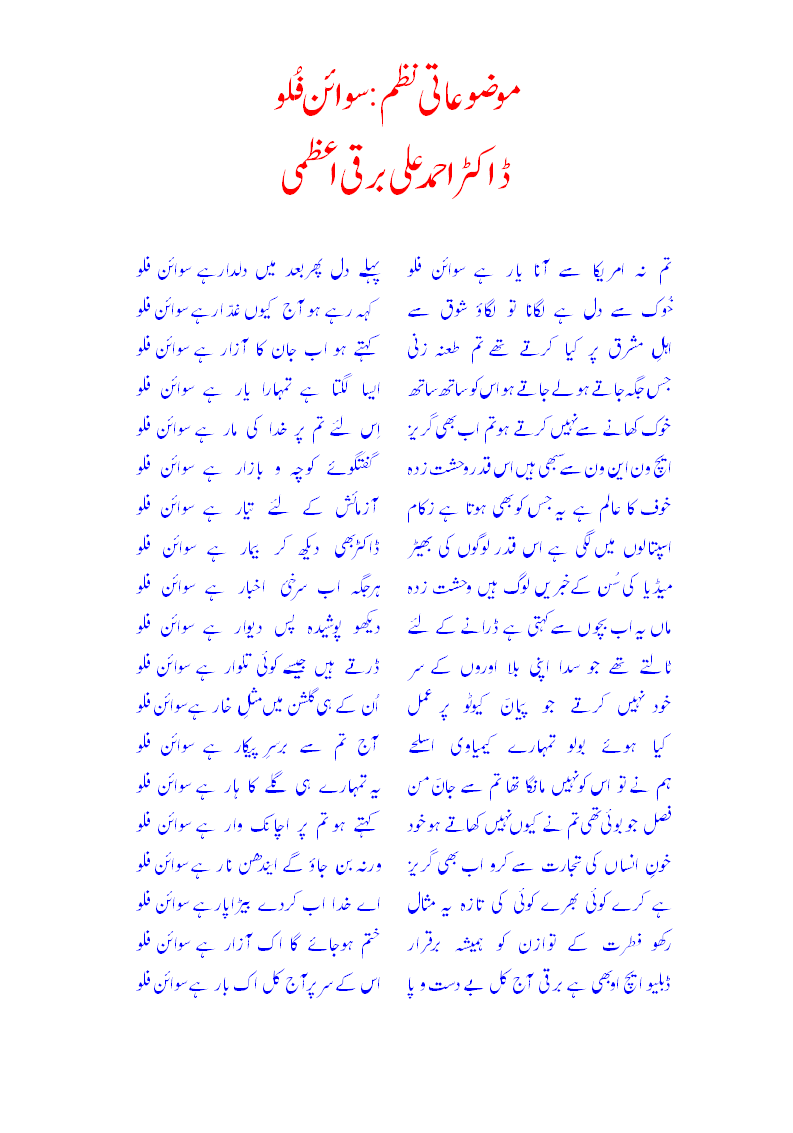 موضوعاتی نظم :سوائن فُلو
ڈاکٹر احمد علی برقی اعظمی
تم نہ امریکا سے آنا یار ہے سوائن فلو پہلے دل پھر بعد میں دلدار ہے سوائن فلو
خُوک سے دل ہے لگانا تو لگاؤ شوق سے کہہ رہے ہو آج کیوں غدّار ہے سوائن فلو
اہلِ مشرق پر کیا کرتے تھے تم طعنہ زنی کہتے ہو اب جان کا آزار ہے سوائن فلو
جس جگہ جاتے ہو لے جاتے ہو اس کو ساتھ ساتھ ایسا لگتا ہے تمہارا یار ہے سوائن فلو
خوک کھانے سے نہیں کرتے ہو تم اب بھی گریز اِس لئے تم پر خدا کی مار ہے سوائن فلو
ایچ ون این ون سے سبھی ہیں اس قدر وحشت زدہ گفتگوئے کوچہ و بازار ہے سوائن فلو
خوف کا عالم ہے یہ جس کو بھی ہوتا ہے زکام آزمائش کے لئے تیار ہے سوائن فلو
اسپتالوں میں لگی ہے اس قدر لوگوں کی بھیڑ ڈاکٹر بھی دیکھ کر بیمار ہے سوائن فلو
میڈیا کی سُن کے خبریں لوگ ہیں وحشت زدہ ہر جگہ اب سرخیٔ اخبار ہے سوائن فلو
ماں یہ اب بچوں سے کہتی ہے ڈرانے کے لئے دیکھو پوشیدہ پس دیوار ہے سوائن فلو
ٹالتے تھے جو سدا اپنی بلا اوروں کے سر ڈرتے ہیں جیسے کوئی تلوار ہے سوائن فلو
خود نہیں کرتے جو پیمانِ کیوٹو پر عمل اُن کے ہی گلشن میں مثلِ خار ہے سوائن فلو
کیا ہوئے بولو تمہارے کیمیاوی اسلحے آج تم سے برسرِ پیکار ہے سوائن فلو
ہم نے تو اس کو نہیں مانگا تھا تم سے جانِ من یہ تمہارے ہی گلے کا ہار ہے سوائن فلو
فصل جو بوئی تھی تم نے کیوں نہیں کھاتے ہو خود کہتے ہو تم پر اچانک وار ہے سوائن فلو
خونِ انساں کی تجارت سے کرو اب بھی گریز ورنہ بن جاؤ گے ایندھن نار ہے سوائن فلو
ہے کرے کوئی بھرے کوئی کی تازہ یہ مثال اے خدا اب کردے بیڑا پار ہے سوائن فلو
رکھو فطرت کے توازن کو ہمیشہ برقرار ختم ہوجائے گا اک آزار ہے سوائن فلو
ڈبلیو ایچ او بھی ہے برقی آج کل بے دست و پا اس کے سر پر آج کل اک بار ہے سوائن فلو